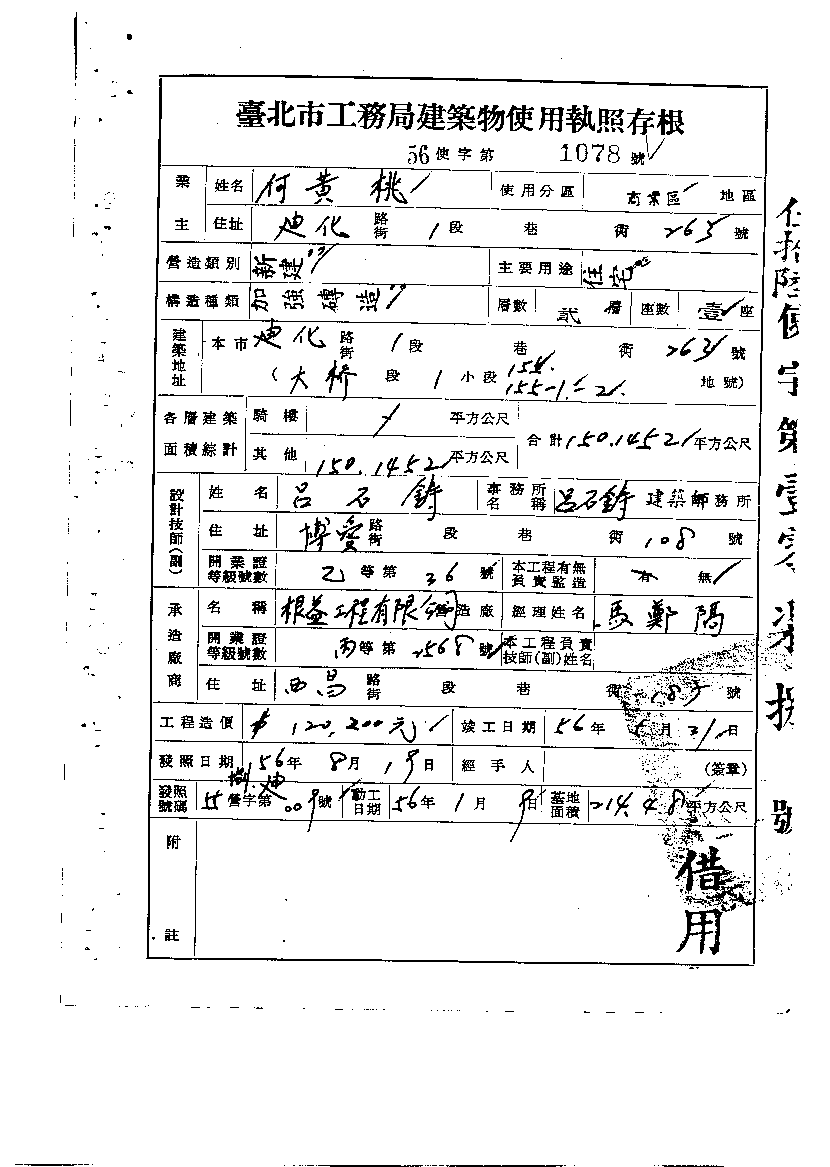 臺北市工務局建築物使用執照存根
56使字第 1078 號
業主 姓名 何黃桃 使用分區 商業區 地區
住址 迪化 路街 1段 巷 街 265 號
營造類別 新建 主要用途 住宅
構造種類 加強磚造 層數 貳 層 座數 壹 座
建築地址 本市 迪化 路街 1段 巷 街 263 號
(大桥 段 1 小段 154. 155-1.=2 地號)
各層建築面積綜計 騎樓 平方公尺 合計 150.1452 平方公尺
其他 150.1452 平方公尺
設計技師(副) 姓名 呂石鑄 事務所名稱 呂石鑄 建築師務所
住址 博愛 路街 段 巷 街 108 號
開業證等級號數 乙等第 36 號 本工程有無負責監造 有 無
承造廠商 名稱 根益工程有限公司 營造廠 經理姓名 馬鄭陽
開業證等級號數 丙等第 2568 號 本工程負責技師(副)姓名
住址 西昌 路街 段 巷 街 號
工程造價 $120,200元 竣工日期 56年 月 31日
發照日期 56年 8月 19日 經手人 (簽章)
發照號碼 55 營字第 009號 動工日期 56年 1月 9日 基地面積 214.48 平方公尺
附註
借用
伍拾陸使字第壹零柒捌號